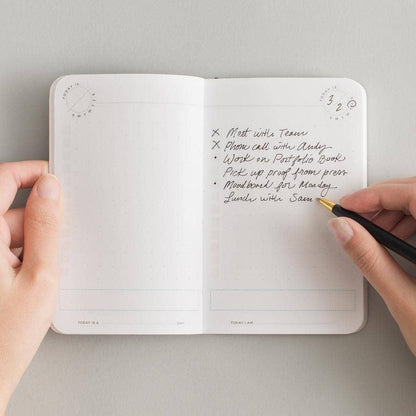 TODAY IS
TODAY IS
3 2
x Meet with Team
x Phone call with Andy
• Work on Portfolio Book
Pick up proof from press
• Moodboard for Monday
Lunch with Sam
TODAY IS A
DAY
TODAY I AM